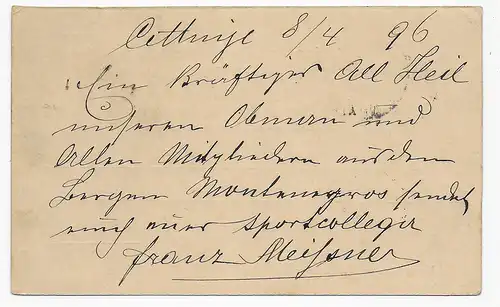 Cettinje 8/4 96
Ein kräftiges All Heil
unseren Obmann und
Allen Mitgliedern aus den
Bergen Montenegros sendet
euch euer Sportcollega
Franz Meißner